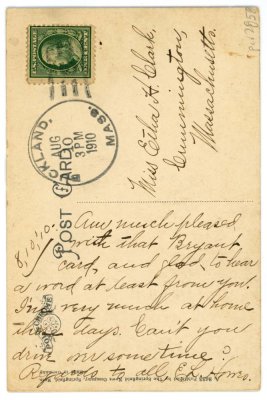 U.S. POSTAGE
1 CENT 1
CKLAND,
MASS.
AUG
10
3 PM
1910
POST CARD
Miss Etha H. Clark,
Cummington,
Massachusetts.
8/10/10.
Am much pleased
with that Bryant
card, and glad to hear
a word at least from you.
I'm very much at home
these days. Can't you
drive over sometime?
Regards to all